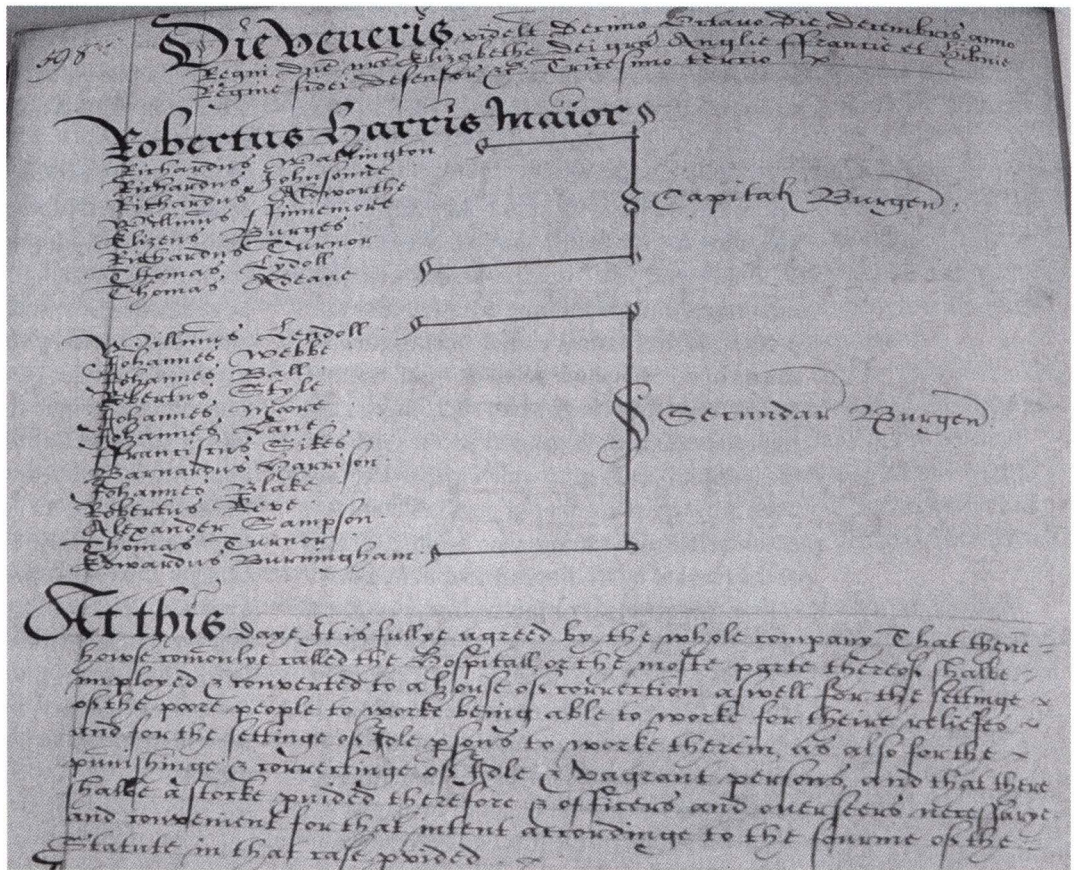 598
Die veneris videlt Decimo Octavo Die Decembris anno
Regni Dne nre Elizabethe Dei gra Anglie ffrancie et Hibnie
Regine fidei Defensor &c. Tricesimo tertio
Robertus Harris Maior
Richardus Watlington
Richardus Johnsonne
Richardus Aldworthe
Willmus ffinnemore
Elizens Burges
Richardus Turnor
Thomas Lydoll
Thomas Deane
Capitah Burgen
Willmus Lendoll
Johannes Webbe
Johannes Ball
Robertus Style
Johannes Moore
Johannes Lane
ffranciscus Sikes
Barnardus Harrison
Johannes Blake
Robertus Reve
Alexander Sampson
Thomas Turnor
Edwardus Burningham
Secundar Burgen
At this daye It is fullye agreed by the whole company That there
howse comonlye called the Hospitall or the moste parte thereof shalbe
imployed & converted to a house of correction aswell for the settinge
of the poore people to worke being able to worke for theire reliefes
and for the settinge of Idle psons to worke therein, as also for the
punishinge & correctinge of Idle & Vagrant persons, and that there
shalbe a stocke pvided therefore & officers and overseers necessarye
and convenient for that intent accordinge to the fourme of the
Statute in that case pvided